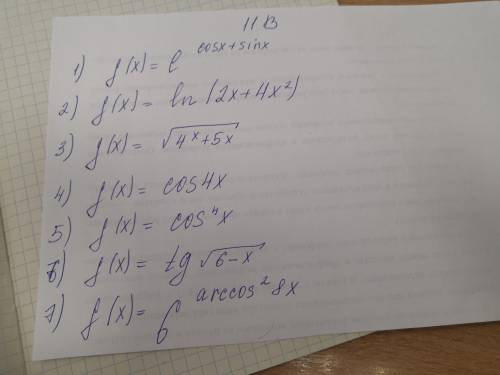 11 В
1) f(x) = e^(cosx+sinx)
2) f(x) = ln(2x+4x²)
3) f(x) = √(4^x+5x)
4) f(x) = cos4x
5) f(x) = cos⁴x
6) f(x) = tg √(6-x)
7) f(x) = 6^(arccos²8x)